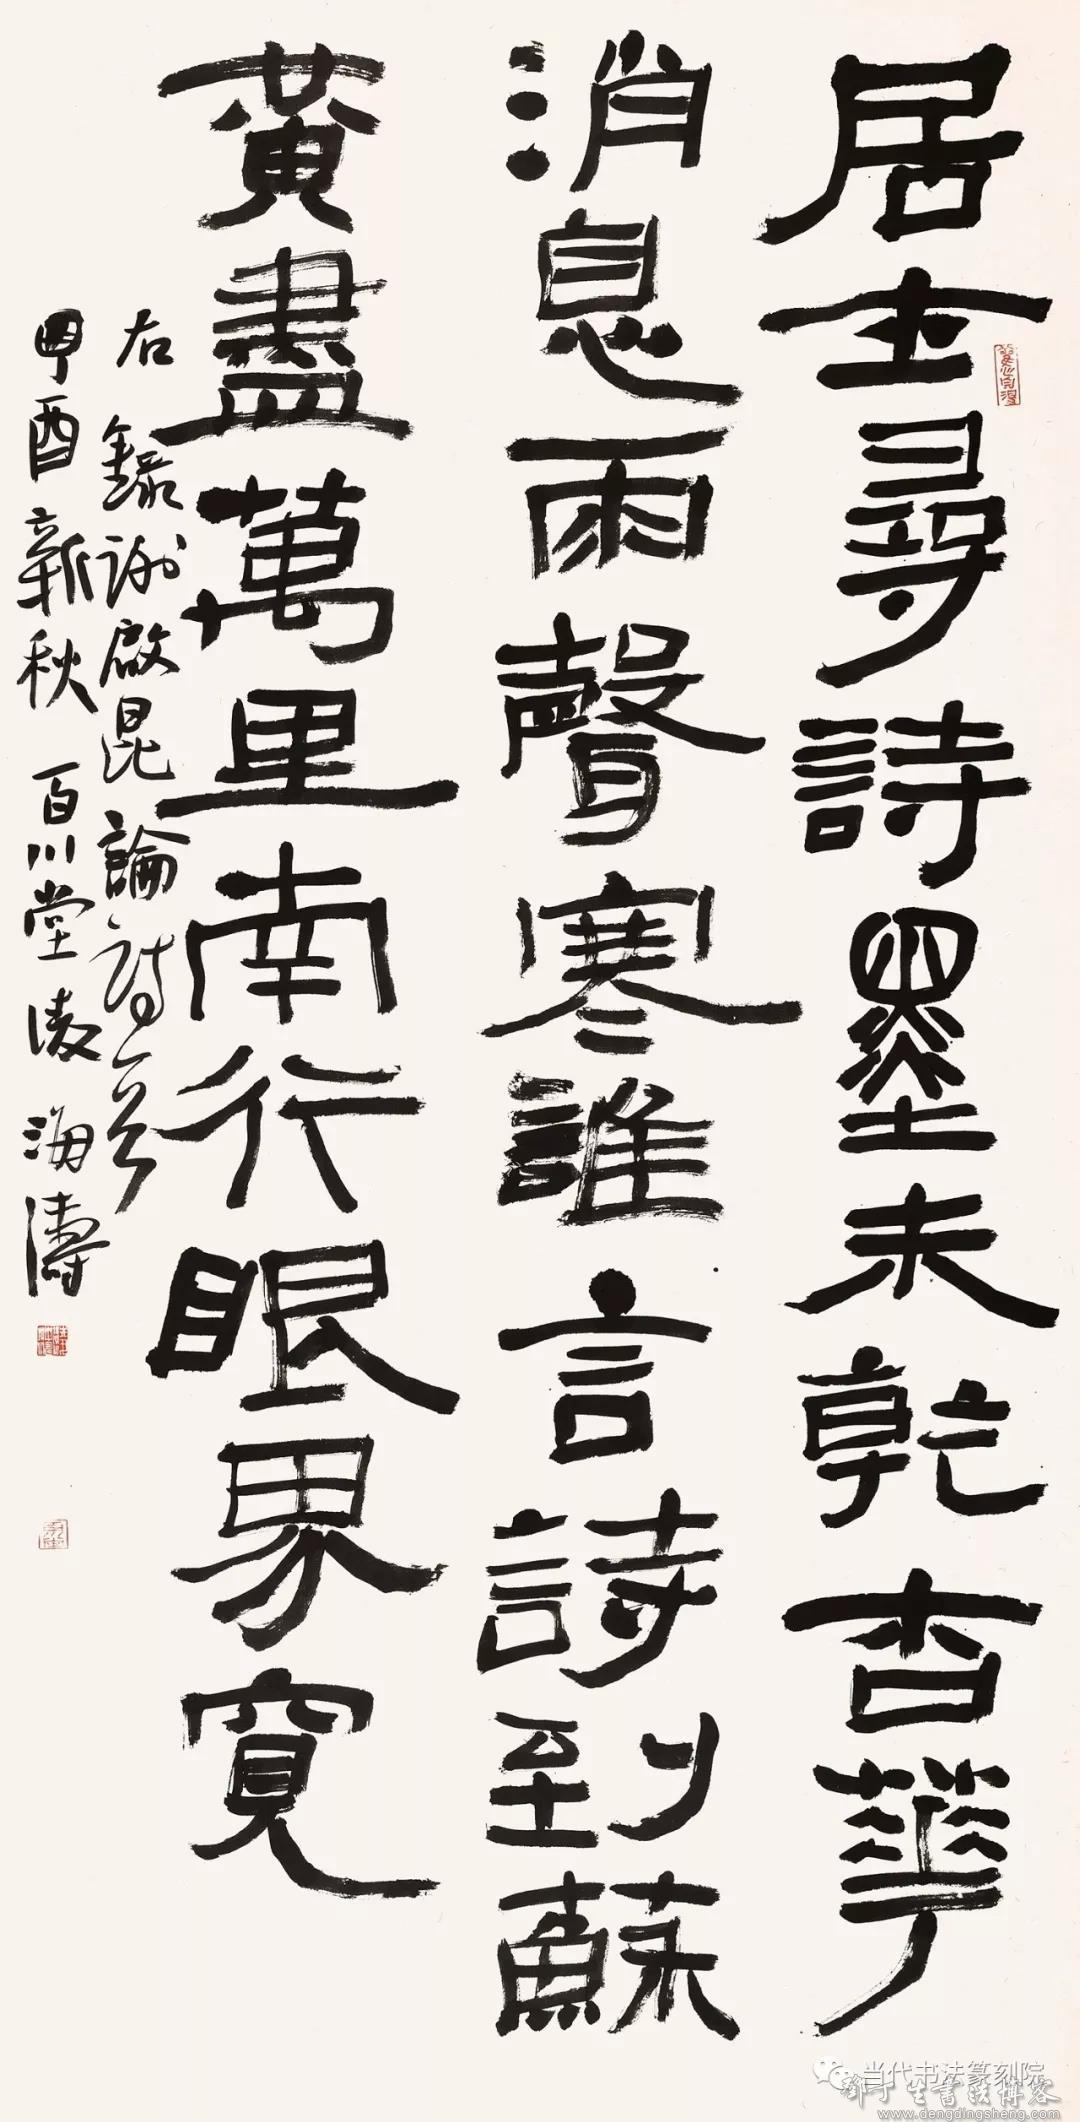 居士尋詩墨未乾杏華
消息雨聲寒誰言詩到蘇
黃盡萬里南行眼界寬
右錄謝啟昆論詩一首
酉新秋 百川堂凌海濤
当代书法篆刻院
邓丁生書法博客
www.dengdingsheng.com